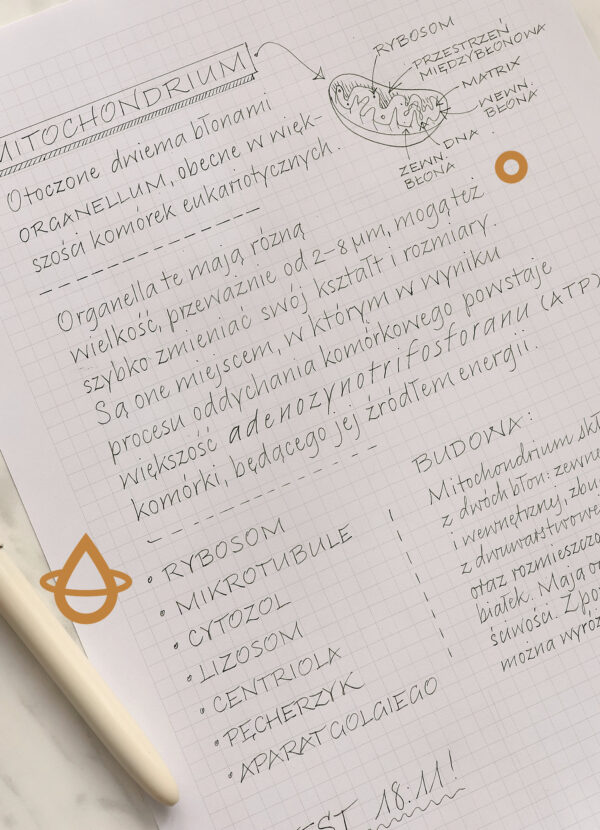 MITOCHONDRIUM
Otoczone dwiema błonami
ORGANELLUM, obecne w więk-
szości komórek eukariotycznych.
RYBOSOM
PRZESTRZEŃ
MIĘDZYBŁONOWA
MATRIX
WEWN.
BŁONA
DNA
ZEWN.
BŁONA
Organella te mają różną
wielkość, przeważnie od 2-8 μm, mogą też
szybko zmieniać swój kształt i rozmiary.
Są one miejscem, w którym w wyniku
procesu oddychania komórkowego powstaje
większość adenozynotrifosforanu (ATP)
komórki, będącego jej źródłem energii.
• RYBOSOM
• MIKROTUBULE
• CYTOZOL
• LIZOSOM
• CENTRIOLA
• PĘCHERZYK
• APARAT GOLGIEGO
BUDOWA:
Mitochondrium skł
z dwóch błon: zewnę
i wewnętrznej, zbu
z dwuwarstwowe
oraz rozmieszczo
białek. Mają o
ściwości. Z po
można wyróż
EST 18:11!